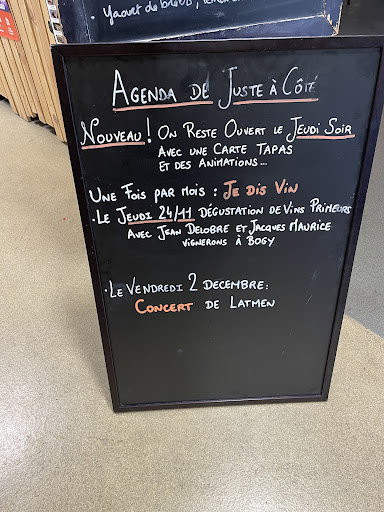 • Yaourt de brebis,
AGENDA DE JUSTE À CÔTÉ
NOUVEAU ! ON RESTE OUVERT LE JEUDI SOIR
AVEC UNE CARTE TAPAS
ET DES ANIMATIONS...
UNE FOIS PAR MOIS : JE DIS VIN
• LE JEUDI 24/11 DÉGUSTATION DE VINS PRIMEURS
AVEC JEAN DELOBRE ET JACQUES MAURICE
VIGNERONS À BOGY
• LE VENDREDI 2 DECEMBRE :
CONCERT DE LATMEN